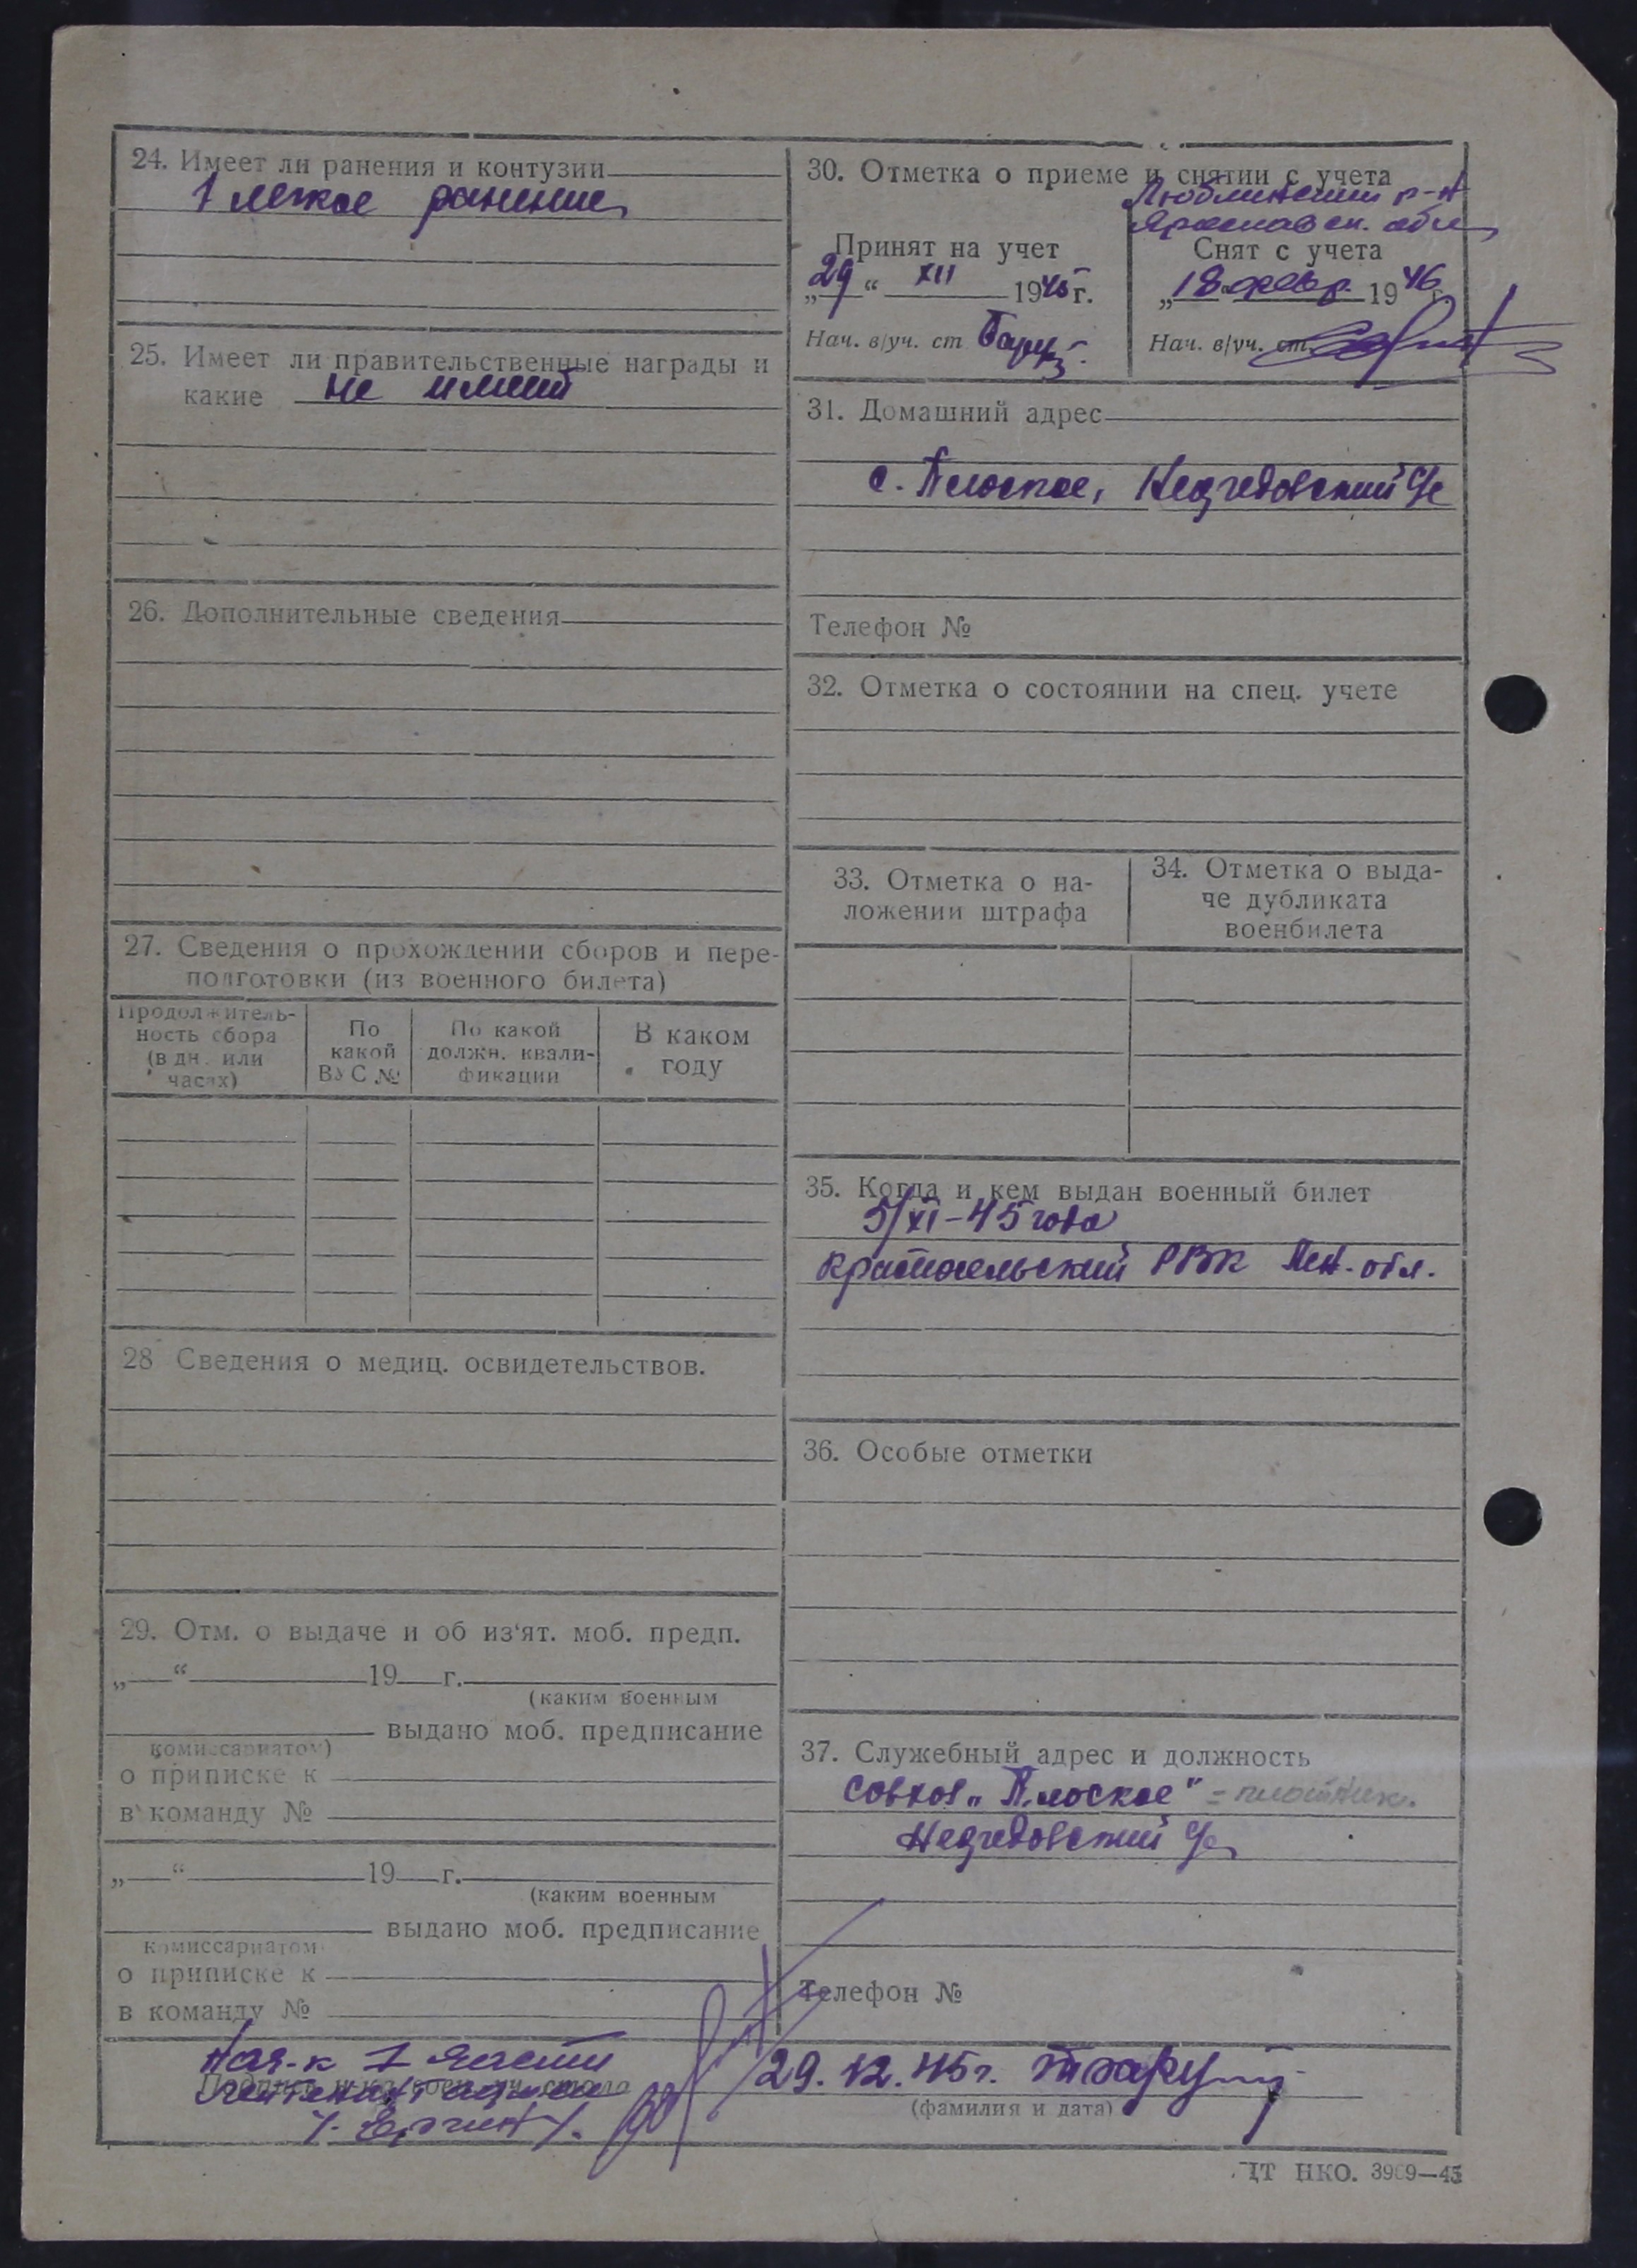 24. Имеет ли ранения и контузии
1 легкое ранение
25. Имеет ли правительственные награды и
какие не имеет
26. Дополнительные сведения
27. Сведения о прохождении сборов и пере-
подготовки (из военного билета)
Продолжитель-
ность сбора
(в дн. или
часах)
По
какой
ВУС №
По какой
должн. квали-
фикации
В каком
году
28 Сведения о медиц. освидетельствов.
29. Отм. о выдаче и об из‘ят. моб. предп.
„ “ 19 г.
(каким военным
выдано моб. предписание
комиссариатом)
о приписке к
в команду №
„ “ 19 г.
(каким военным
выдано моб. предписание
комиссариатом
о приписке к
в команду №
30. Отметка о приеме и снятии с учета
р-н
Ярославск. обл
Принят на учет
„29“ XII 1945 г.
Нач. в/уч. ст
Снят с учета
„18 февр. 1946
Нач. в/уч. ст.
31. Домашний адрес
с. Плоское,
Телефон №
32. Отметка о состоянии на спец. учете
33. Отметка о на-
ложении штрафа
34. Отметка о выда-
че дубликата
военбилета
35. Когда и кем выдан военный билет
5/XI-45 года
Красносельский РВК Лен. обл.
36. Особые отметки
37. Служебный адрес и должность
совхоз „Плоское" - плотник.
Телефон №
Нач-к 1 части
29.12.45г.
(фамилия и дата)
ЦТ НКО. 3969—45